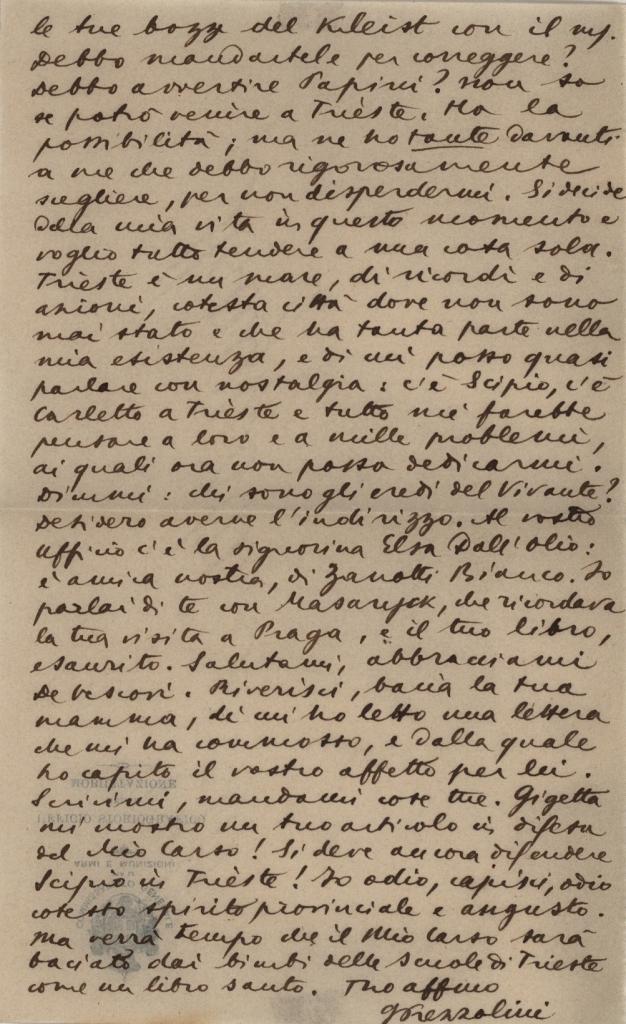 le tue bozze del Kleist con il ms.
Debbo mandartele per correggere?
Debbo avvertire Papini? Non so
se potrò venire a Trieste. Ho la
possibilità; ma ne ho tante davanti
a me che debbo rigorosamente
scegliere, per non disperdermi. Si decide
della mia vita in questo momento e
voglio tutto tendere a una cosa sola.
Trieste è un mare, di ricordi e di
azioni, cotesta città dove non sono
mai stato e che ha tanta parte nella
mia esistenza, e di cui posso quasi
parlare con nostalgia: c'è Scipio, c'è
Carletto a Trieste e tutto mi farebbe
pensare a loro e a mille problemi,
ai quali ora non posso dedicarmi.
Dimmi: chi sono gli eredi del Vivante?
Desidero averne l'indirizzo. Al vostro
ufficio c'è la signorina Elsa Dall'Olio:
è amica nostra, di Zanotti Bianco. Io
parlai di te con Masaryck, che ricordava
la tua visita a Praga, e il tuo libro,
esaurito. Salutami, abbracciami
Devescovi. Riverisci, bacia la tua
mamma, di cui ho letto una lettera
che mi ha commosso, e dalla quale
ho capito il vostro affetto per lei.
Scrivimi, mandami cose tue. Gigetta
mi mostrò un tuo articolo in difesa
del Mio Carso! Si deve ancora difendere
Scipio in Trieste! Io odio, capisci, odio
cotesto spirito provinciale e angusto.
Ma verrà tempo che il Mio Carso sarà
baciato dai bimbi delle scuole di Trieste
come un libro santo. Tuo affmo
GPrezzolini